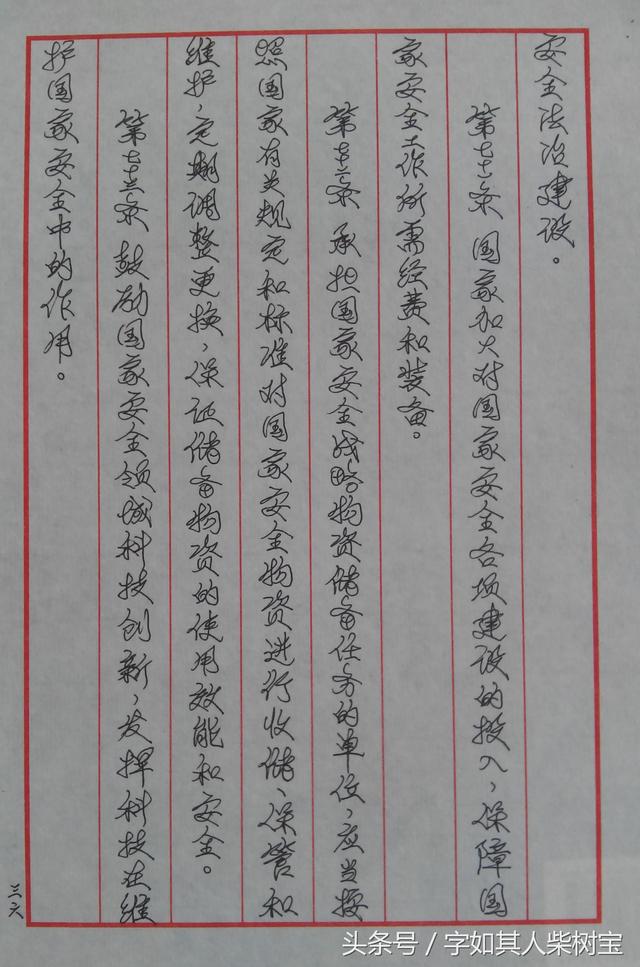 安全法治建设。
第七十一条 国家加大对国家安全各项建设的投入，保障国
家安全工作所需经费和装备。
第七十二条 承担国家安全战略物资储备任务的单位，应当按
照国家有关规定和标准对国家安全物资进行收储、保管和
维护，定期调整更换，保证储备物资的使用效能和安全。
第七十三条 鼓励国家安全领域科技创新，发挥科技在维
护国家安全中的作用。
三六
头条号／字如其人柴树宝